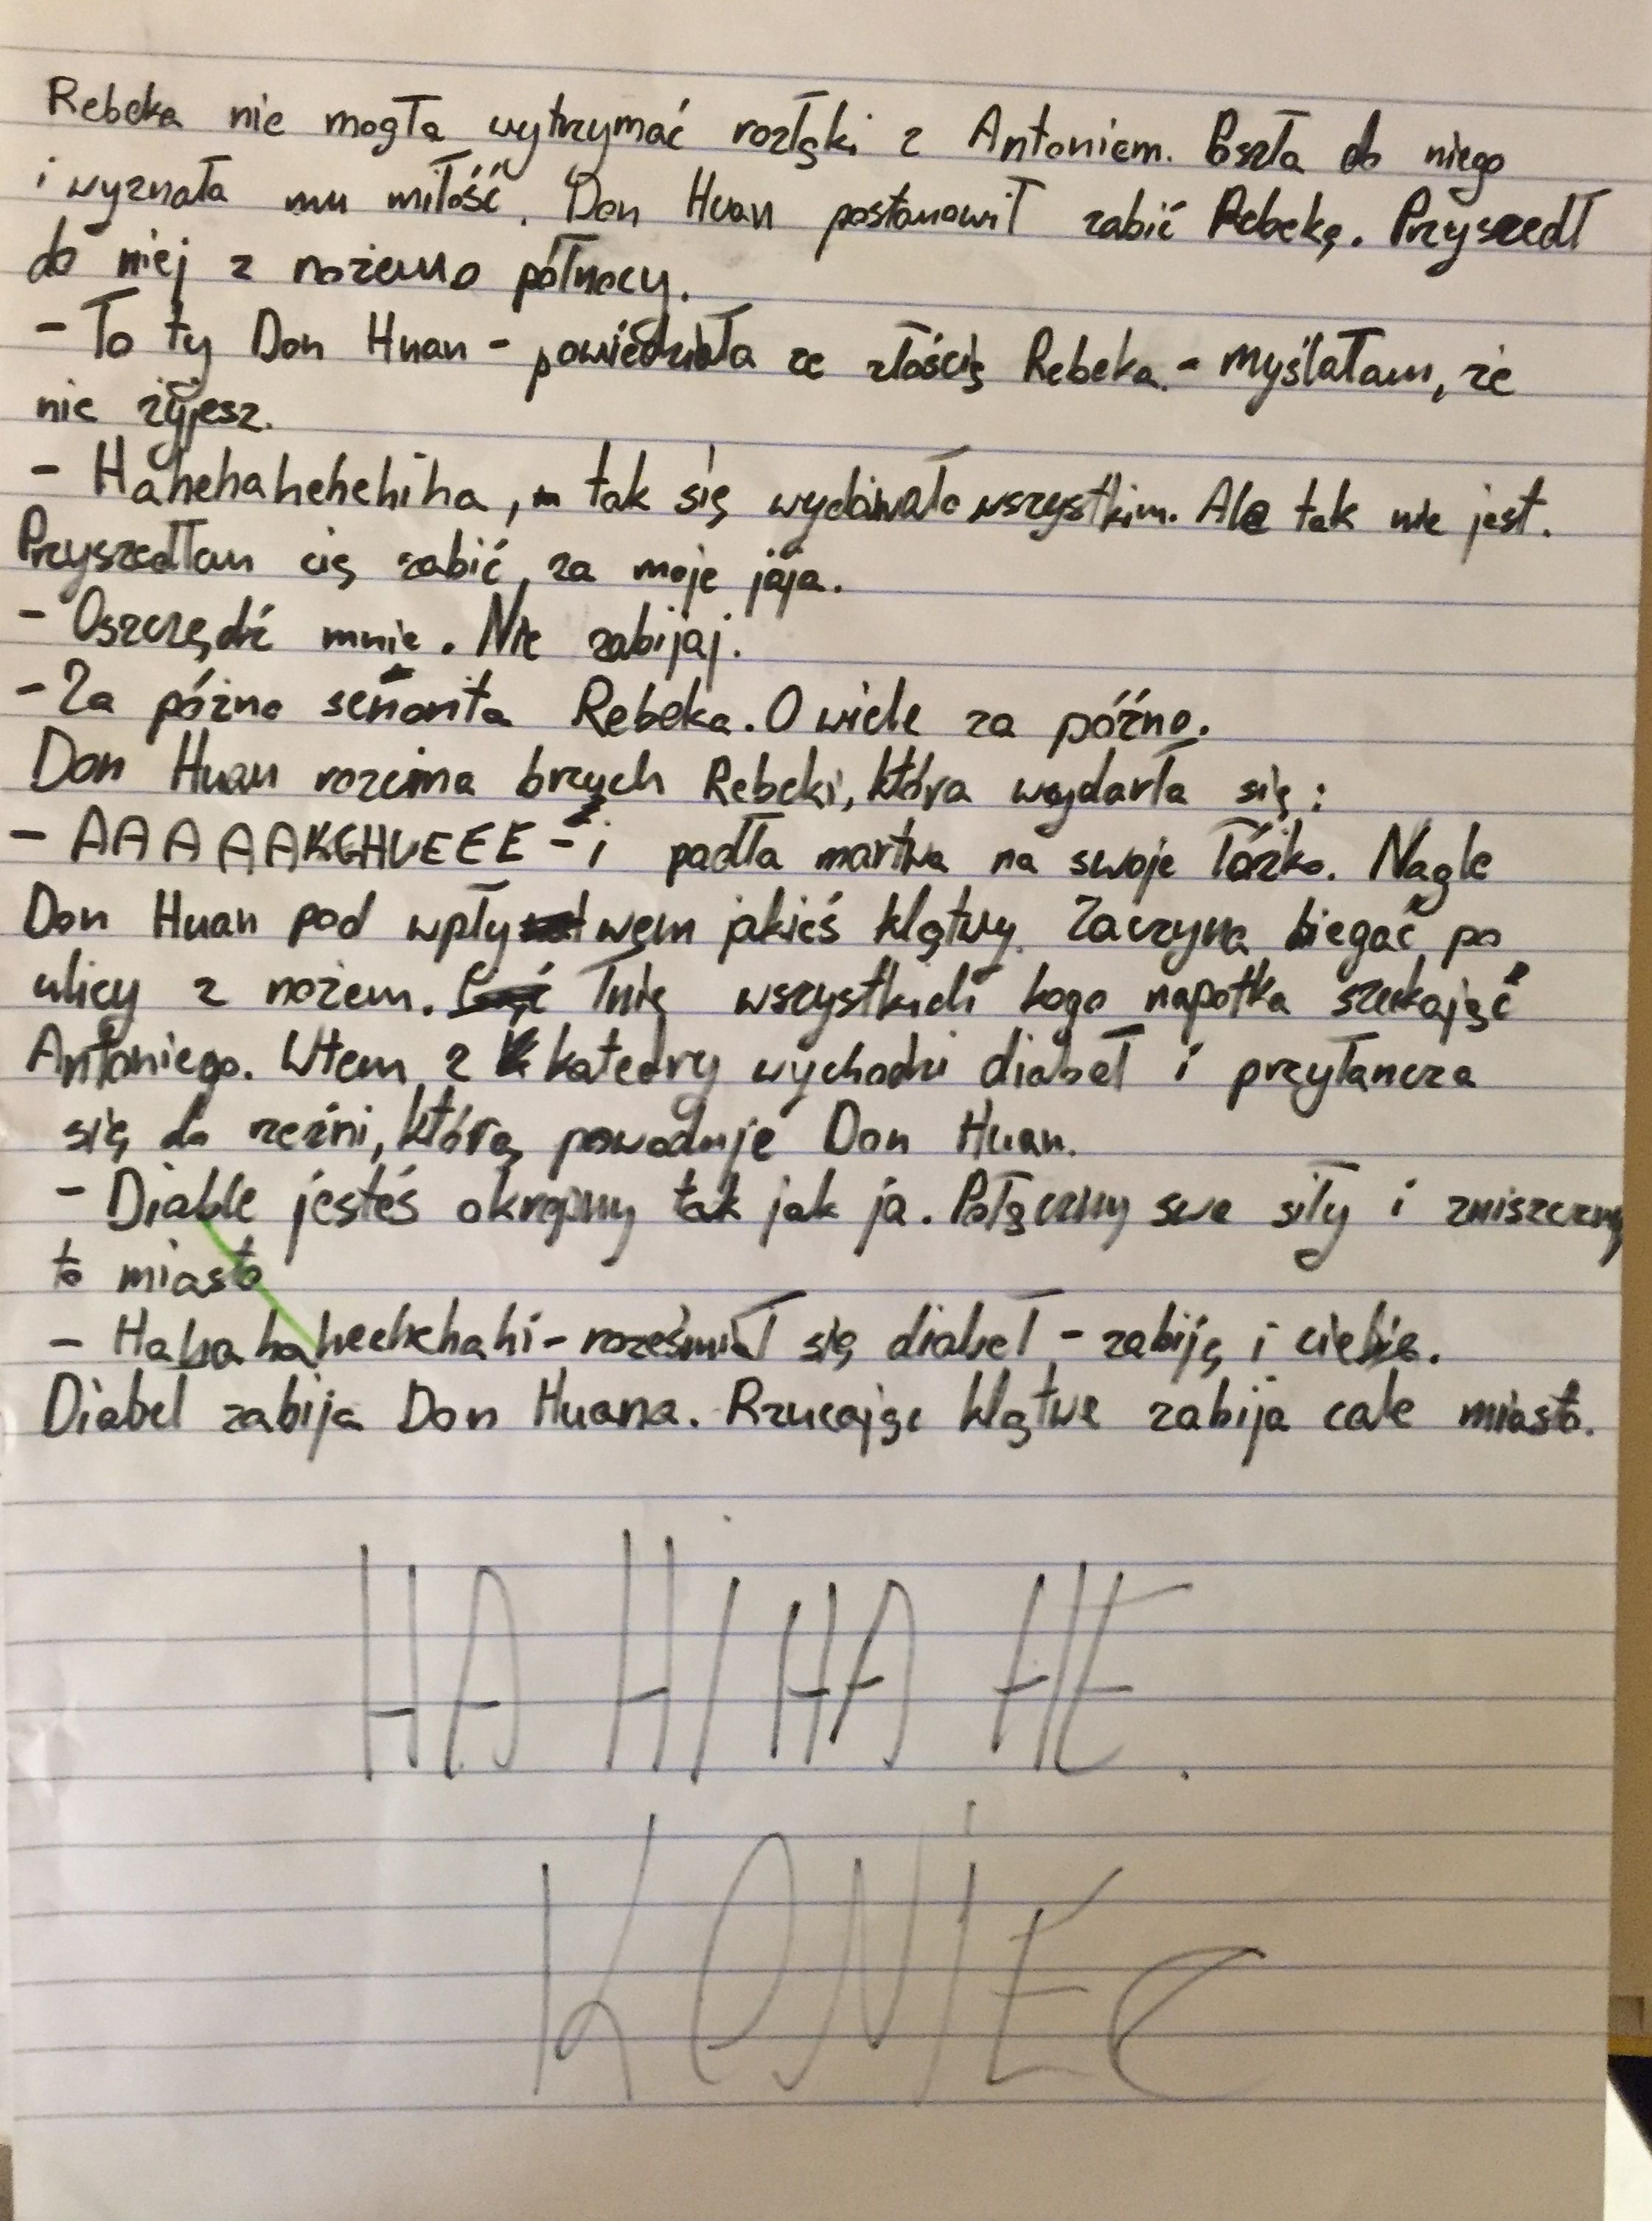 Rebeka nie mogła wytrzymać rozłąki z Antoniem. Poszła do niego
i wyznała mu miłość. Don Huan postanowił zabić Rebekę. Przyszedł
do niej z nożem o północy.
- To ty Don Huan - powiedziała ze złością Rebeka. - Myślałam, że
nie żyjesz.
- Hahehahehehiha, tak się wydawało wszystkim. Ale tak nie jest.
Przyszedłem cię zabić, za moje jaja.
- Oszczędź mnie. Nie zabijaj.
- Za późno señorita Rebeka. O wiele za późno.
Don Huan rozcina brzych Rebeki, która wydarła się:
- AAAAAKGHUEEE - i padła martwa na swoje łóżko. Nagle
Don Huan pod wpływem jakieś klątwy. Zaczyna biegać po
ulicy z nożem. Tnie wszystkich kogo napotka szukająć
Antoniego. Wtem z katedry wychodzi diabeł i przyłancza
się do rzeźni, którą powoduje Don Huan.
- Diable jesteś okrojny tak jak ja. Połączmy swe siły i zniszczmy
to miasto
- Hahahaheehehahi - roześmiał się diabeł - zabiję i ciebie.
Diabel zabija Don Huana. Rzucając klątwe zabija całe miasto.
HA HI HA HE.
KONIEC